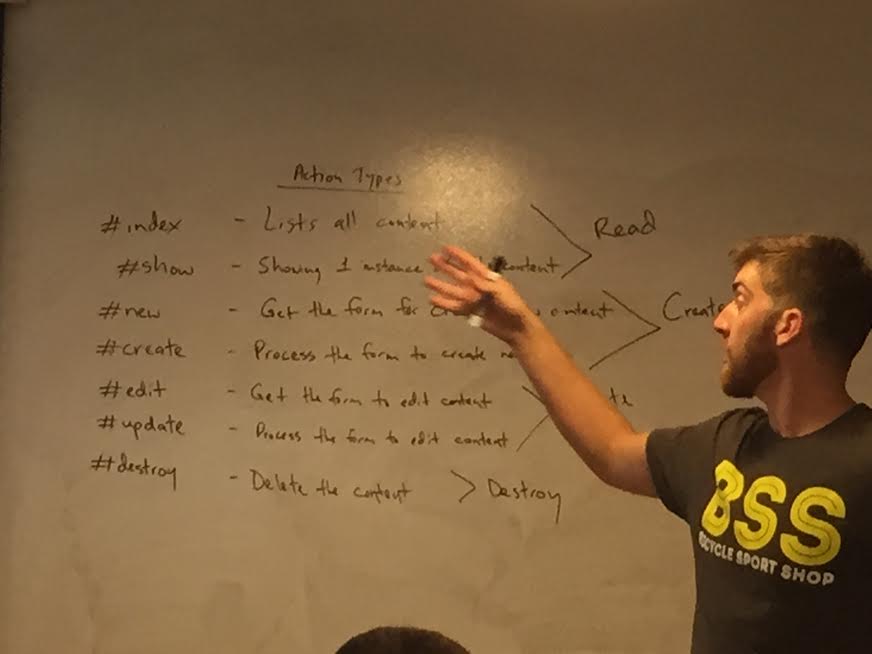 Action Types
#index - Lists all content
Read
#show - Showing 1 instance content
#new - Get the form for content
Create
#create - Process the form to create
#edit - Get the form to edit content
#update - Process the form to edit content
#destroy - Delete the content > Destroy
BSS
BICYCLE SPORT SHOP